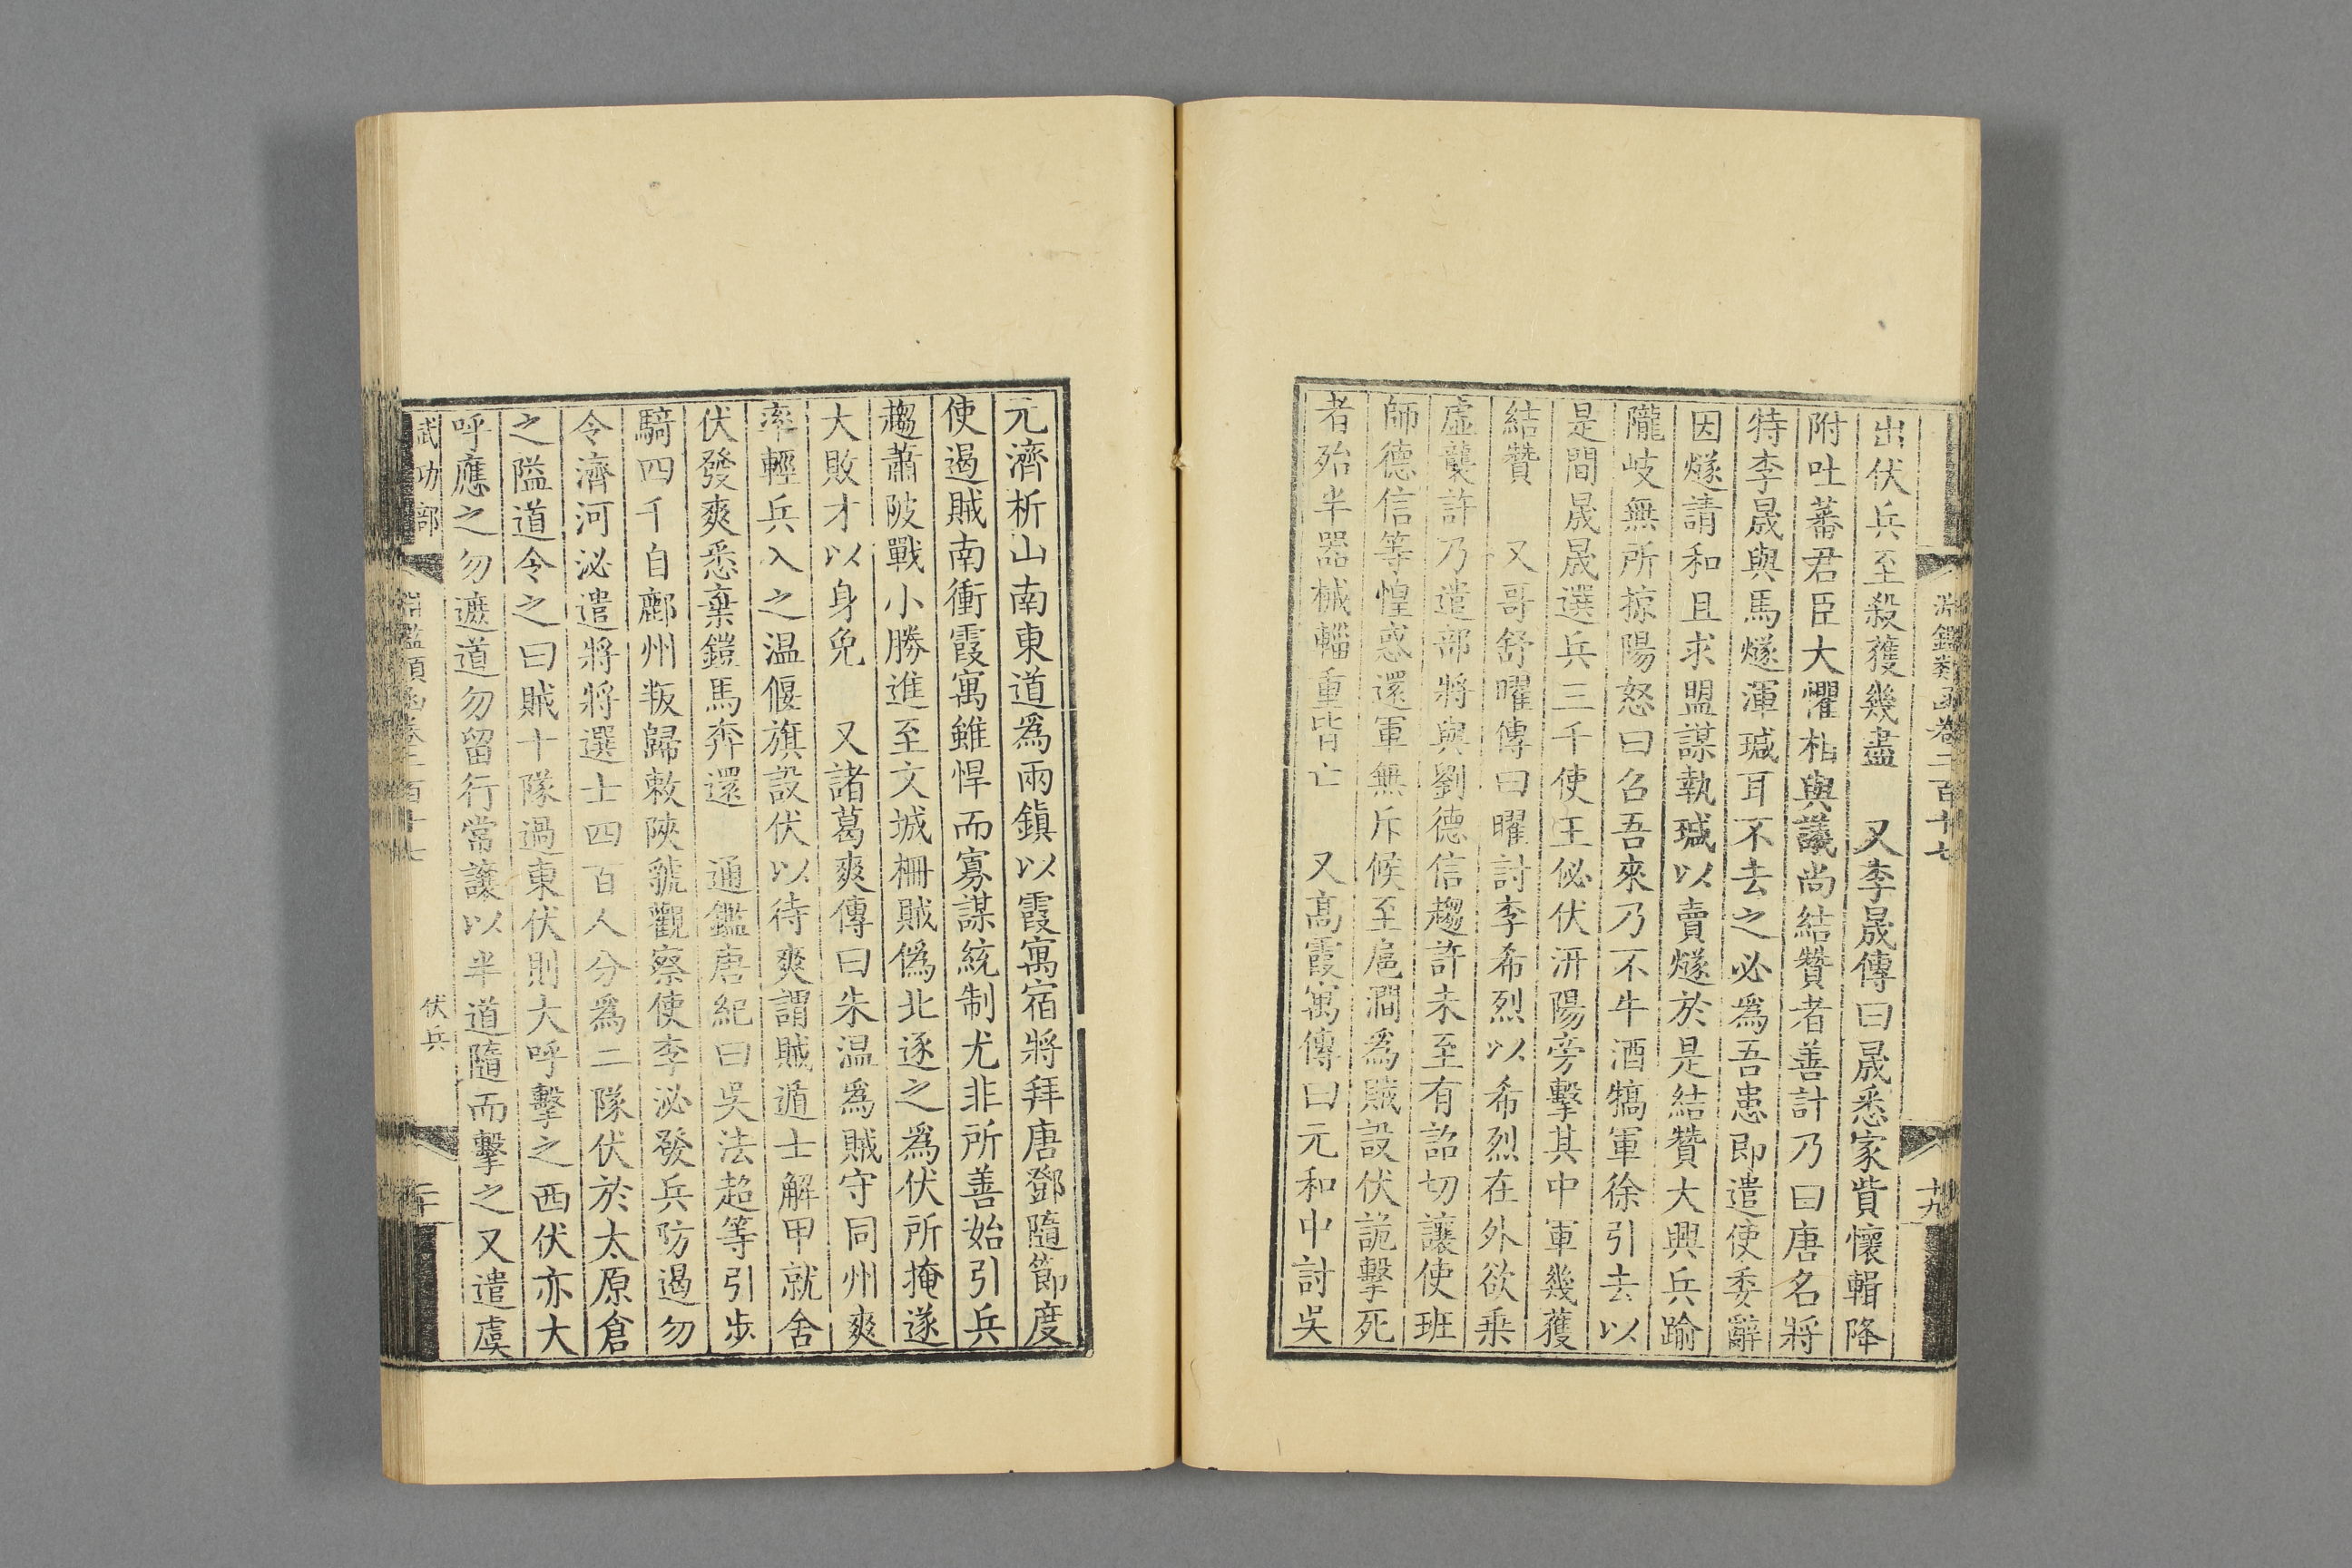 淵鑑類函卷二百十七
十九
出伏兵至殺獲幾盡　又李晟傳曰晟悉家貲懷輯降
附吐蕃君臣大懼相與議尚結贊者善計乃曰唐名將
特李晟與馬燧渾瑊耳不去之必爲吾患即遣使委辭
因燧請和且求盟謀執瑊以賣燧於是結贊大興兵踰
隴岐無所掠陽怒曰召吾來乃不牛酒犒軍徐引去以
是間晟晟選兵三千使王佖伏汧陽旁擊其中軍幾獲
結贊　又哥舒曜傳曰曜討李希烈以希烈在外欲乗
虛襲許乃遣部將與劉德信趨許未至有詔切讓使班
師德信等惶惑還軍無斥候至扈澗爲賊設伏詭擊死
者殆半器械輜重皆亡　又髙霞寓傳曰元和中討吳
元濟析山南東道爲兩鎮以霞寓宿將拜唐鄧隨節度
使遏賊南衝霞寓雖悍而寡謀統制尤非所善始引兵
趨蕭陂戰小勝進至文城柵賊僞北逐之爲伏所掩遂
大敗才以身免　又諸葛爽傳曰朱温爲賊守同州爽
率輕兵入之温偃旗設伏以待爽謂賊遁士解甲就舍
伏發爽悉棄鎧馬奔還　通鑑唐紀曰吳法超等引步
騎四千自鄜州叛歸敕陝虢觀察使李泌發兵防遏勿
令濟河泌遣將將選士四百人分爲二隊伏於太原倉
之隘道令之曰賊十隊過東伏則大呼擊之西伏亦大
呼應之勿遮道勿留行常讓以半道隨而擊之又遣虞
武功部
淵鑑類函卷二百十七
伏兵
二十